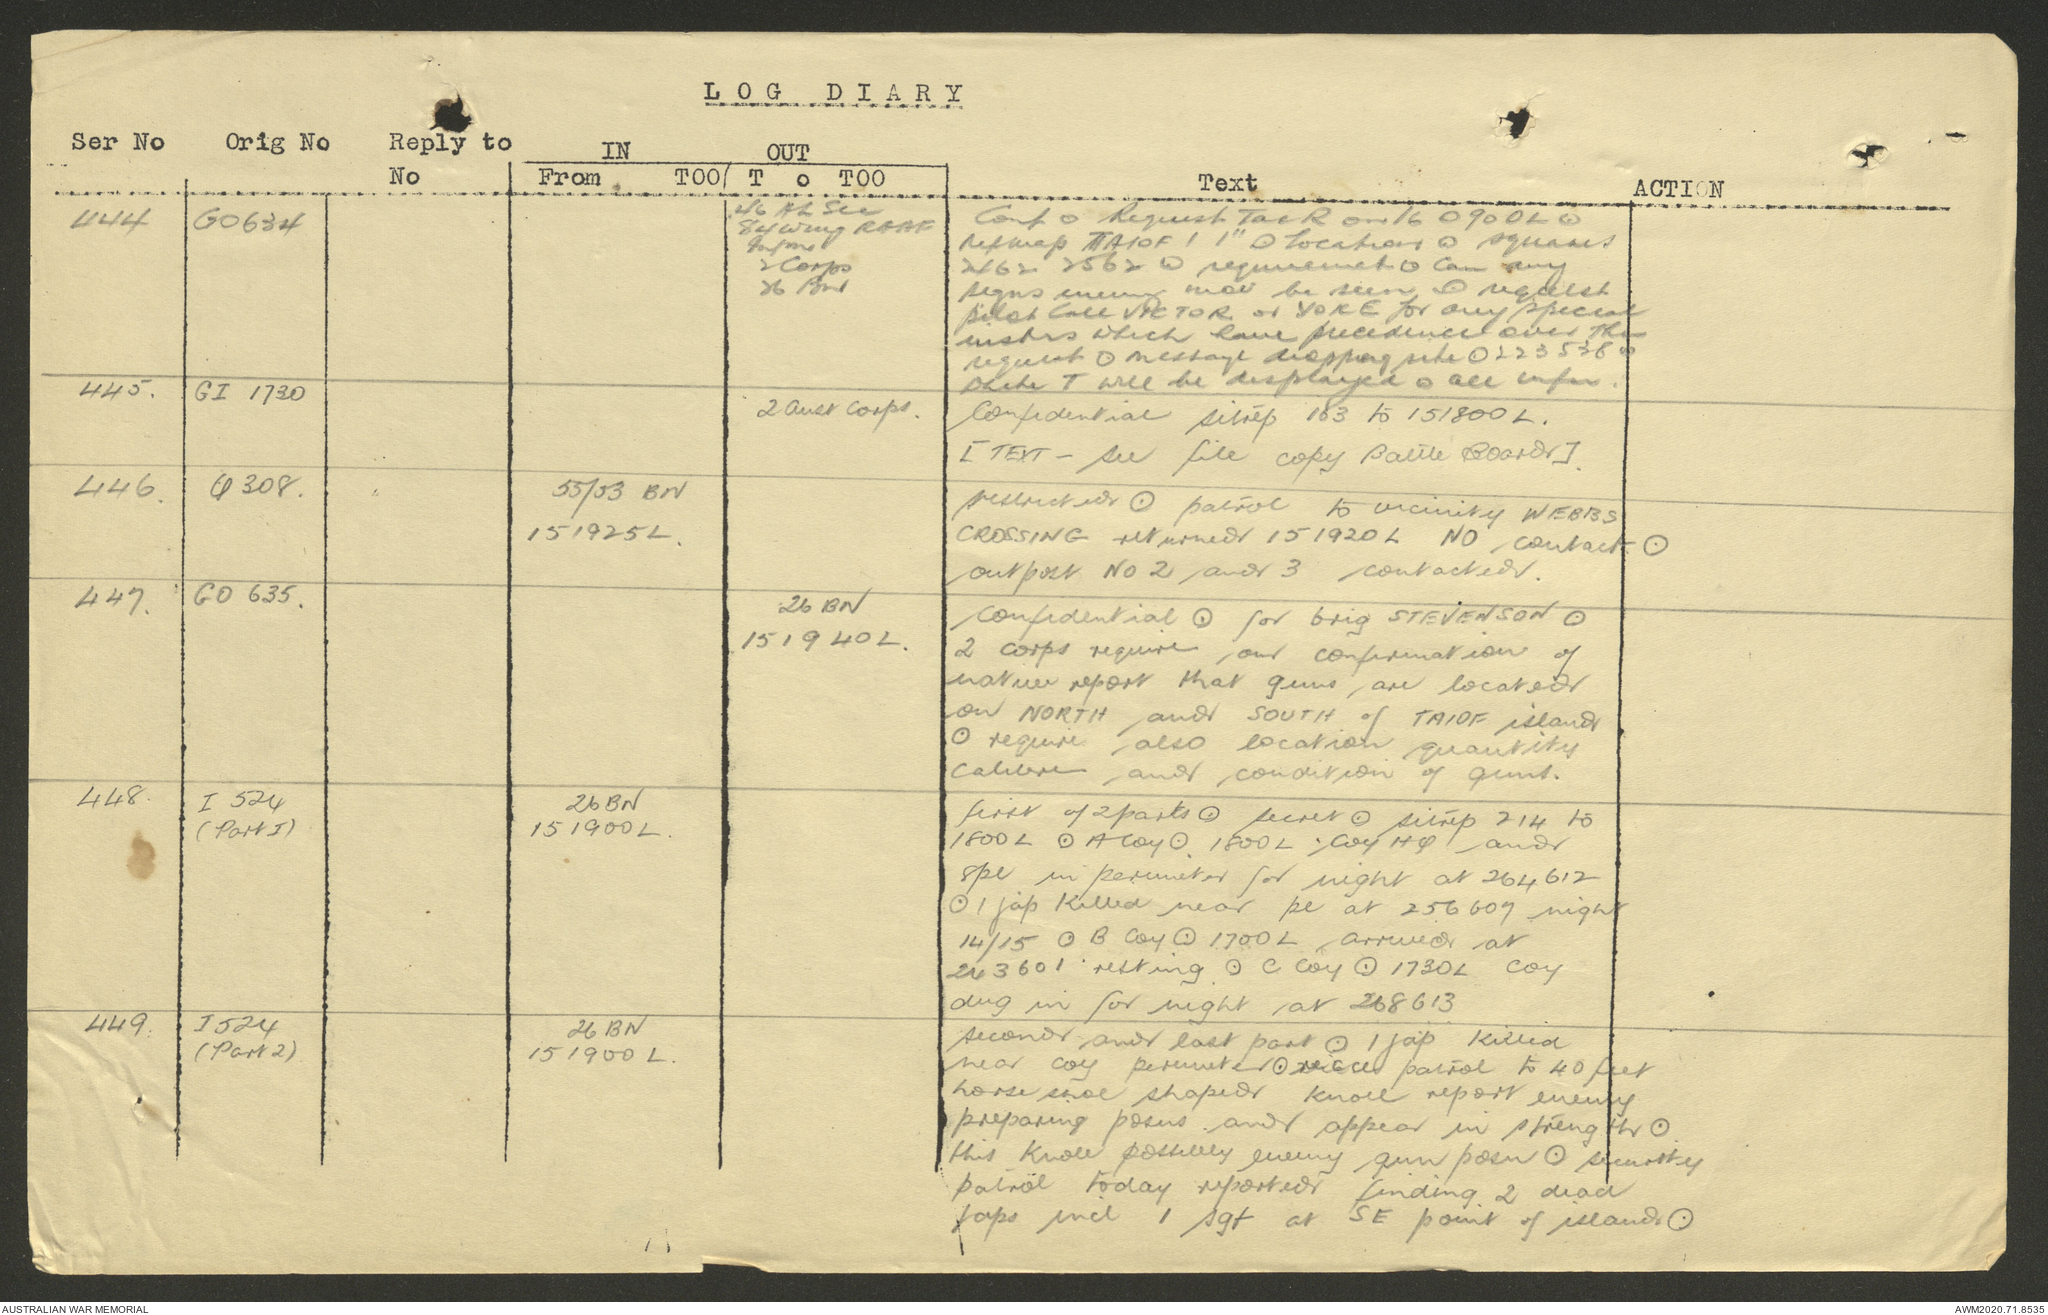 LOG DIARY
Ser No Orig No Reply to No IN OUT
From TOO / T o TOO Text ACTION
444 GO634
46 AL Sec
84 Wing RAAF
Infm
2 Corps
26 Bn
Conf ⊙ Request Tac R on 16 0900L ⊙
Ref map TAIOF 1 1" ⊙ location ⊙ squares
2462 2562 ⊙ requirement ⊙ can any
signs enemy mov be seen ⊙ request
pilot call VICTOR or YOKE for any special
instrs which have precedence over this
request ⊙ message dropping site ⊙ 223538 ⊙
white T will be displayed ⊙ all infm.
445. GI 1730
2 Aust Corps.
Confidential sitrep 163 to 151800L.
[TEXT - see file copy Battle Board].
446. Q 308.
55/53 BN
151925L.
restricted ⊙ patrol to vicinity WEBBS
CROSSING returned 151920L NO contact ⊙
outpost No 2 and 3 contacted.
447. GO 635.
26 BN
151940L.
Confidential ⊙ for brig STEVENSON ⊙
2 corps require our confirmation of
native report that guns are located
on NORTH and SOUTH of TAIOF island
⊙ require also location quantity
calibre and condition of guns.
448. I 524
(Part I)
26 BN
151900L.
first of 2 parts ⊙ secret ⊙ sitrep 214 to
1800L ⊙ A Coy ⊙ 1800L Coy HQ and
8pl in perimeter for night at 264612
⊙ 1 jap killed near pl at 256607 night
14/15 ⊙ B Coy ⊙ 1700L arrived at
243601 resting ⊙ C Coy ⊙ 1730L coy
dug in for night at 268613
449. I 524
(Part 2)
26 BN
151900L.
second and last part ⊙ 1 jap killed
near coy perimeter ⊙ recce patrol to 40 feet
horse shoe shaped knoll report enemy
preparing posns and appear in strength ⊙
this knoll possibly enemy gun posn ⊙ security
patrol today reported finding 2 dead
japs incl 1 sgt at SE point of island ⊙
AUSTRALIAN WAR MEMORIAL
AWM2020.71.8535